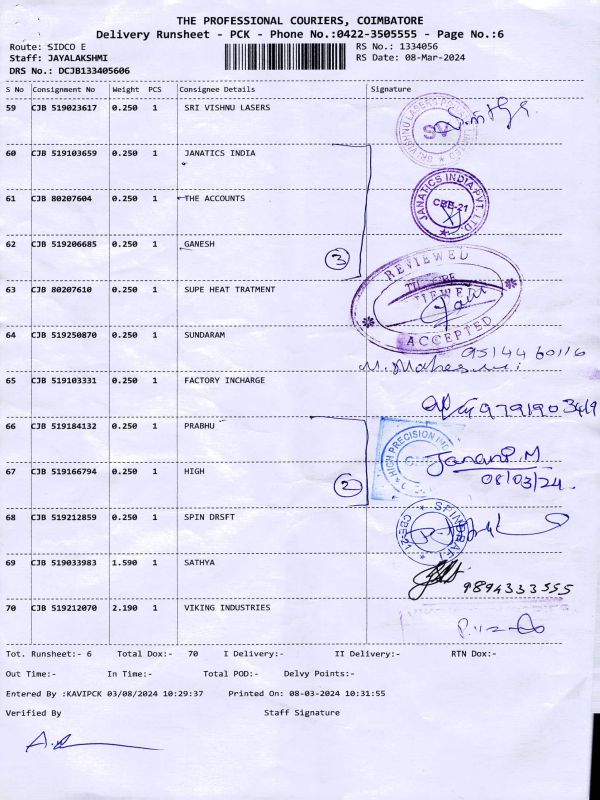 THE PROFESSIONAL COURIERS, COIMBATORE
Delivery Runsheet - PCK - Phone No.:0422-3505555 - Page No.:6
Route: SIDCO E
RS No.: 1334056
Staff: JAYALAKSHMI
RS Date: 08-Mar-2024
DRS No.: DCJB133405606
S No Consignment No Weight PCS Consignee Details Signature
59 CJB 519023617 0.250 1 SRI VISHNU LASERS
SRI VISHNU LASERS
SV
60 CJB 519103659 0.250 1 JANATICS INDIA
61 CJB 80207604 0.250 1 THE ACCOUNTS
JANATICS INDIA PVT. LTD.
CBE-21
62 CJB 519206685 0.250 1 GANESH
3
REVIEWED
63 CJB 80207610 0.250 1 SUPE HEAT TRATMENT
ACCEPTED
64 CJB 519250870 0.250 1 SUNDARAM
9514460116
M. Maheswari
65 CJB 519103331 0.250 1 FACTORY INCHARGE
9791903419
66 CJB 519184132 0.250 1 PRABHU
HIGH PRECISION IND
67 CJB 519166794 0.250 1 HIGH
2
Janani.M
08/03/24.
68 CJB 519212859 0.250 1 SPIN DRSFT
CBE-21
69 CJB 519033983 1.590 1 SATHYA
9894333555
70 CJB 519212070 2.190 1 VIKING INDUSTRIES
Tot. Runsheet:- 6 Total Dox:- 70 I Delivery:- II Delivery:- RTN Dox:-
Out Time:- In Time:- Total POD:- Delvy Points:-
Entered By :KAVIPCK 03/08/2024 10:29:37 Printed On: 08-03-2024 10:31:55
Verified By Staff Signature